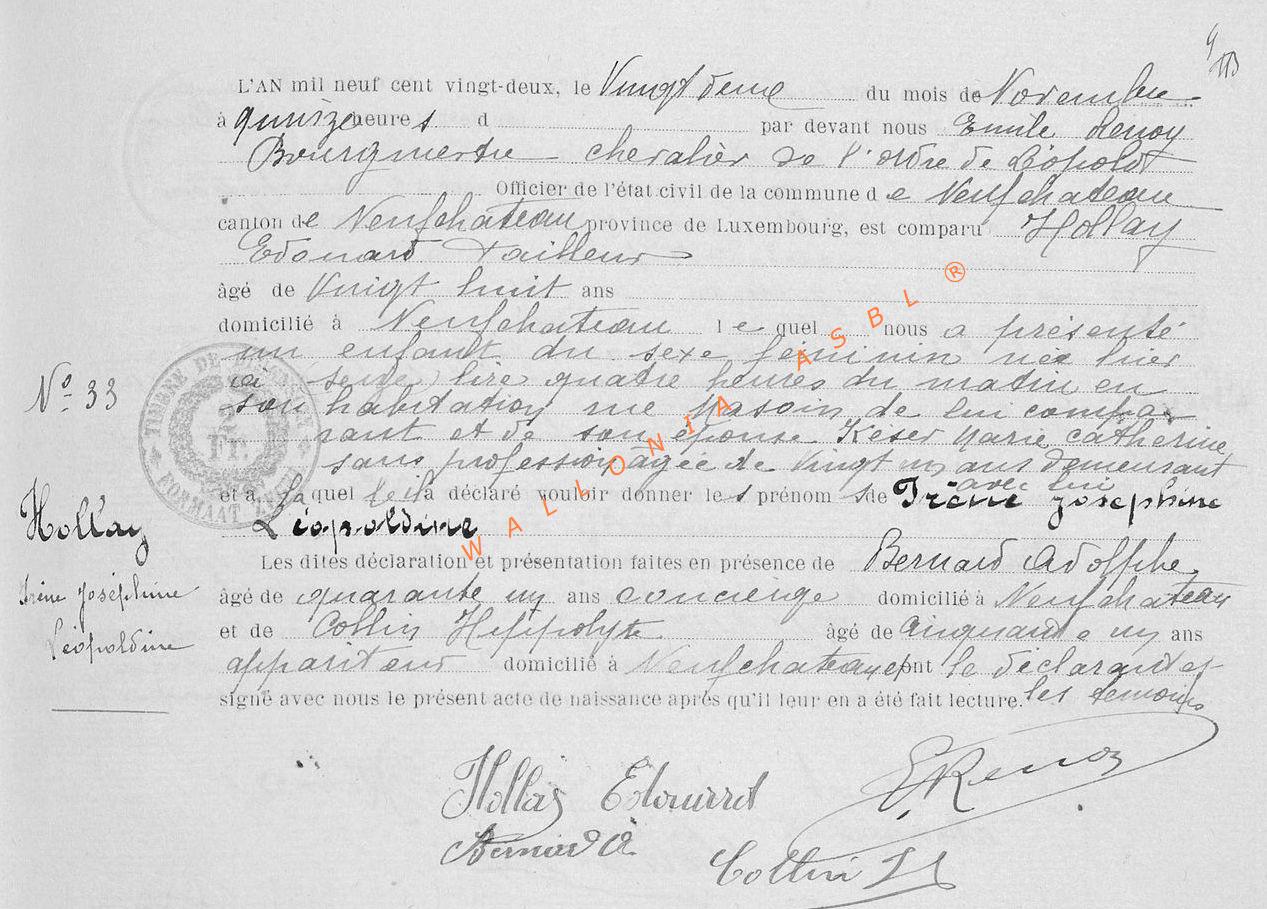 L'AN mil neuf cent vingt-deux, le Vingt deux du mois de Novembre
à quinze heures d par devant nous Emile Renoy
Bourgmestre chevalier de l'ordre de Léopold
Officier de l'état civil de la commune de Neufchateau
canton de Neufchateau province de Luxembourg, est comparu Hollay
Edouard Tailleur
âgé de Vingt huit ans
domicilié à Neufchateau le quel nous a présenté
un enfant du sexe féminin née hier
à lire quatre heures du matin en
son habitation rue de lui compa-
rant et de son épouse Keser Marie Catherine
sans profession âgée de Vingt un ans demeurant
avec lui
et à la quel le il a déclaré vouloir donner les prénom s de Irène Joséphine
Léopoldine
Les dites déclaration et présentation faites en présence de Bernard Adolphe
âgé de quarante un ans concierge domicilié à Neufchateau
et de Collin Hippolyte âgé de cinquante un ans
appariteur domicilié à Neufchateau et ont le déclarant et
signé avec nous le présent acte de naissance après qu'il leur en a été fait lecture. les témoins
No 33
Hollay
Irène Joséphine
Léopoldine
Hollay Edouard
E Renoy
Bernard A
Collin H
TIMBRE DE
2
Fr.
FORMAAT ZEGEL
WALLONIA ASBL ®